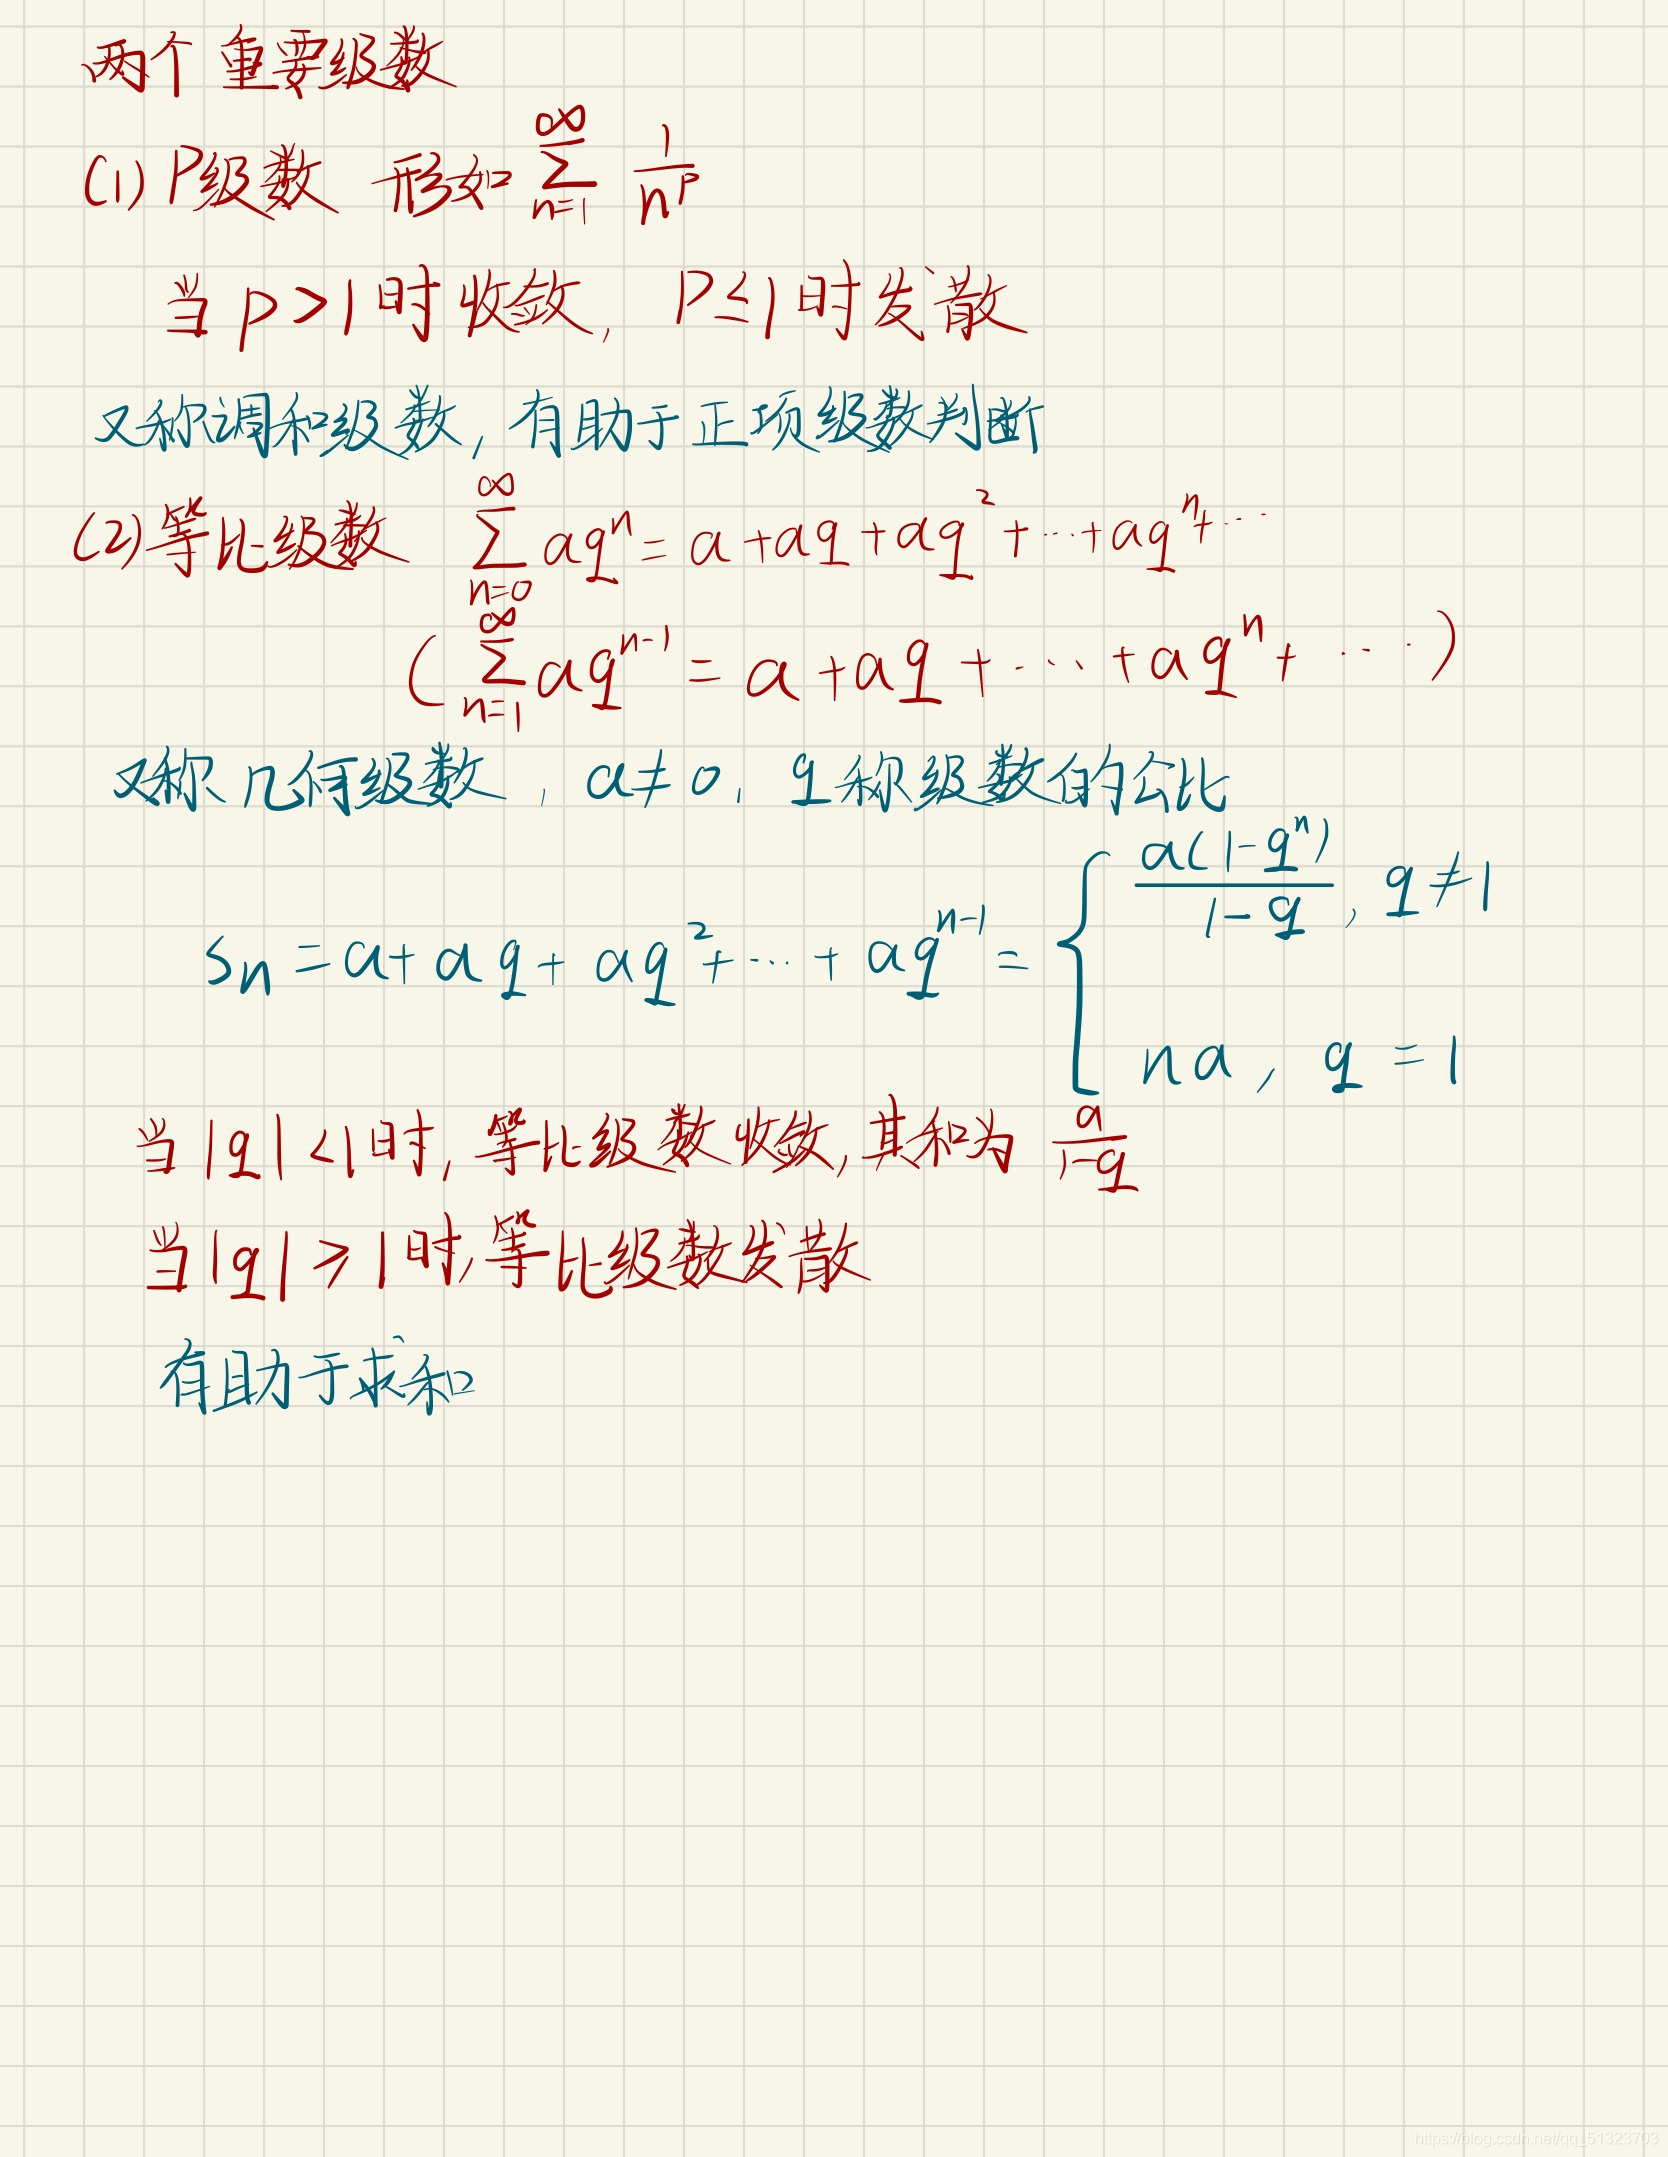 两个重要级数
(1) P级数 形如 $\sum_{n=1}^{\infty} \frac{1}{n^p}$
当 p>1 时收敛, P≤1 时发散
又称调和级数, 有助于正项级数判断
(2) 等比级数 $\sum_{n=0}^{\infty} aq^n = a+aq+aq^2+\cdots+aq^n+\cdots$
$(\sum_{n=1}^{\infty} aq^{n-1} = a+aq+\cdots+aq^n+\cdots)$
又称几何级数, a≠0, q称级数的公比
$S_n = a+aq+aq^2+\cdots+aq^{n-1} = \begin{cases} \frac{a(1-q^n)}{1-q}, q≠1 \\ na, q=1 \end{cases}$
当 |q|<1 时, 等比级数收敛, 其和为 $\frac{a}{1-q}$
当 |q|≥1 时, 等比级数发散
有助于求和
https://blog.csdn.net/qq_51323703